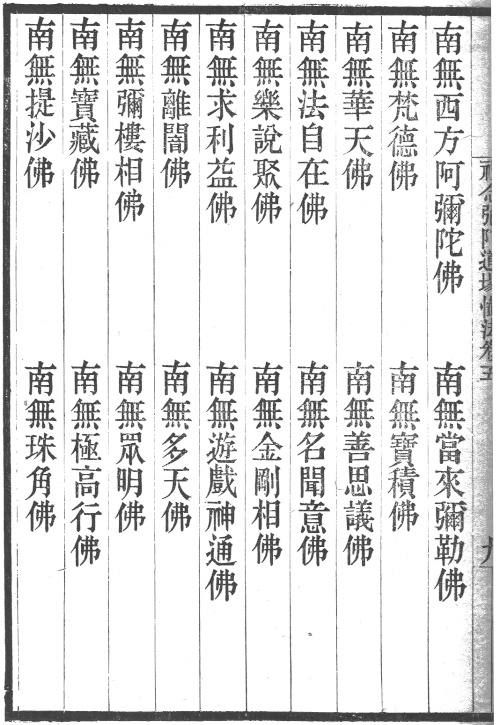 念彌陀道場懺法卷五 九
南無西方阿彌陀佛 南無當來彌勒佛
南無梵德佛 南無寶積佛
南無華天佛 南無善思議佛
南無法自在佛 南無名聞意佛
南無樂說聚佛 南無金剛相佛
南無求利益佛 南無遊戲神通佛
南無離闇佛 南無多天佛
南無彌樓相佛 南無眾明佛
南無寶藏佛 南無極高行佛
南無提沙佛 南無珠角佛